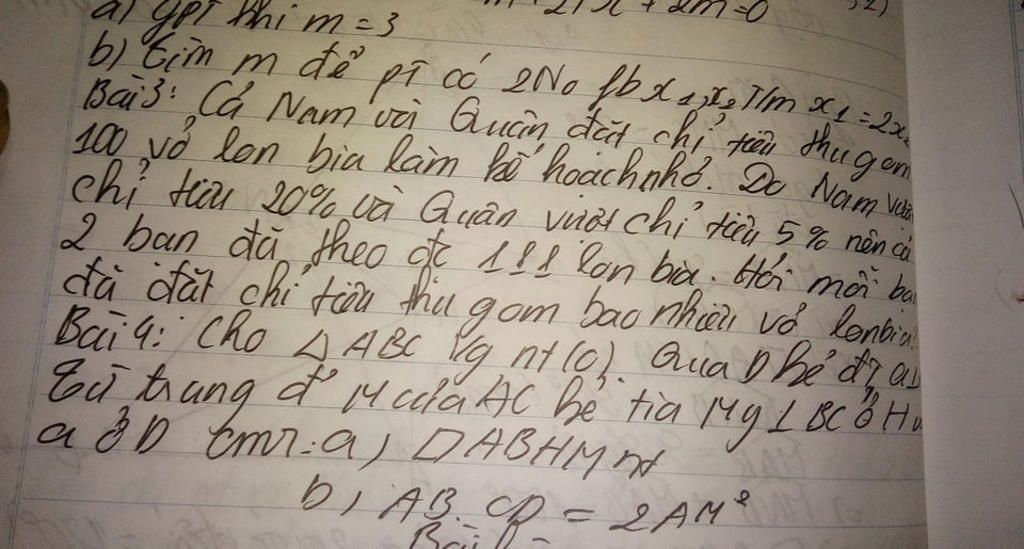 a) gpt khi m=3
m+2)x+2m=0
b) tìm m để pt có 2No fb x1,x2 T/m x1=2x2
Bài 3: Cả Nam và Quân đặt chỉ tiêu thu gom
100 vỏ lon bia làm kế hoạch nhỏ. Do Nam vượt
chỉ tiêu 20% và Quân vượt chỉ tiêu 5% nên cả
2 bạn đã theo đc 111 lon bia. Hỏi mỗi bạ
đã đặt chỉ tiêu thu gom bao nhiêu vỏ lon bia
Bài 4: Cho △ABC vg nt(O). Qua D kẻ đ?
Từ trung đ' M của AC kẻ tia My ⊥ BC ở H
a ở D cmr: a) □ABHM nt
b) AB.CD = 2AM²
Bài